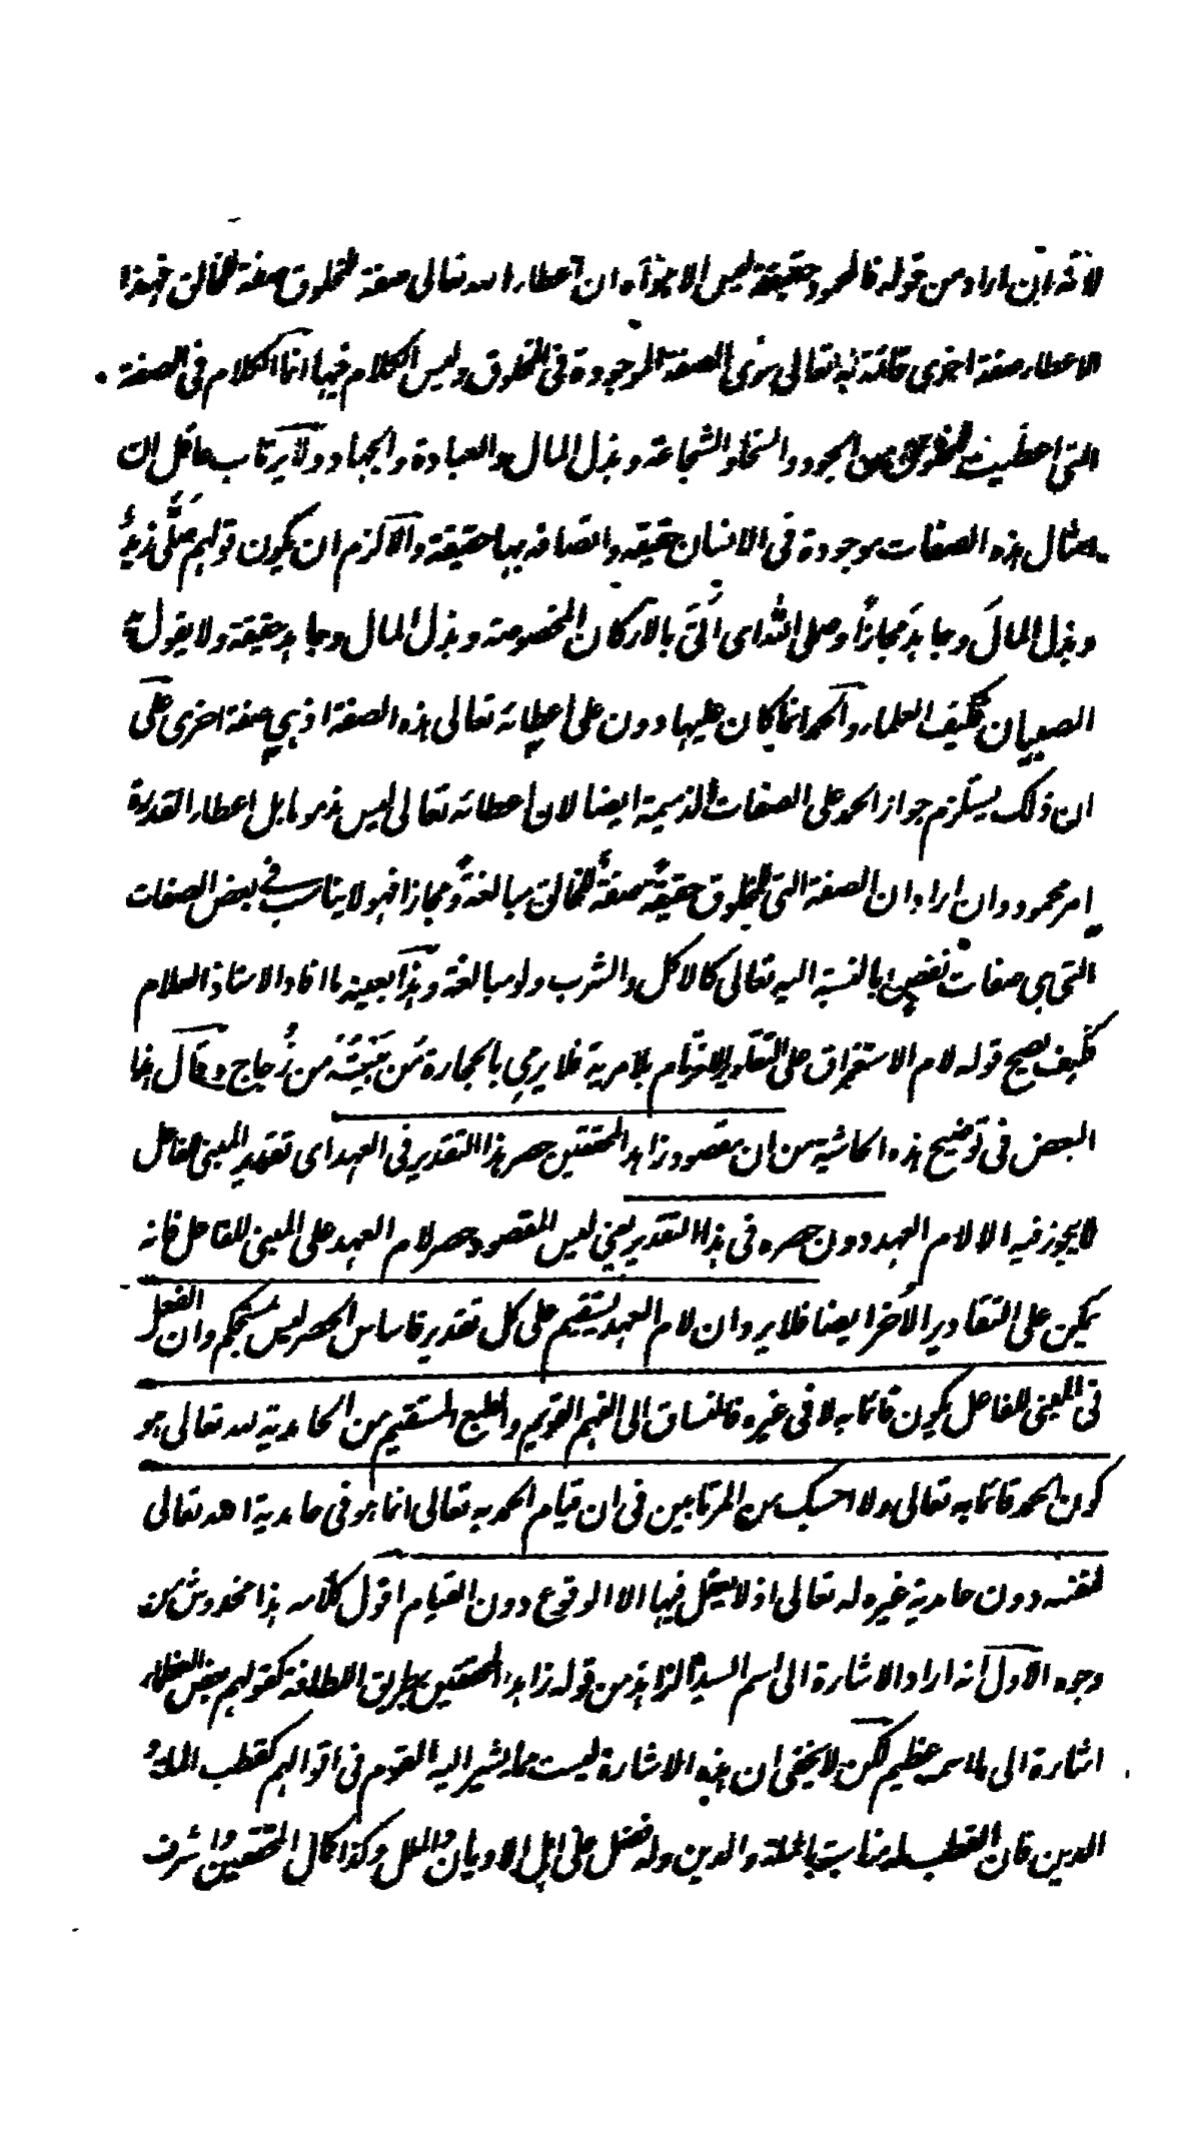 لانه ان اراد من قوله فالمحمود حقيقة ليس الا هو انه ان اعطاء الله تعالى صفة للمخلوق صفة للخالق فهذا
الاعطاء صفة اخرى قائمة به تعالى سوى الصفة الموجودة في المخلوق وليس الكلام فيها انما الكلام في الصفة
التي اعطيت للمخلوق من الجود والسخا والشجاعة وبذل المال والعبادة والجهاد ولا يرتاب عاقل ان
امثال هذه الصفات موجودة في الانسان حقيقة واتصافه بها حقيقة والا لزم ان يكون قولهم صلّى زيدٌ
وبذل المالَ وجاهدَ مجازاً وصلى الله اى اَتى بالاركان المخصوصة وبذل المال وجاهد حقيقة ولا يقول به
الصبيان فكيف العلماء والحمد انما كان عليها دون على اعطائه تعالى هذه الصفة اذ هي صفة اخرى على
ان ذلك يستلزم جواز الحمد على الصفات الذميمة ايضا لان اعطائه تعالى ليس بذموما بل اعطاء القدرة
امر محمود وان اراد ان الصفة التي للمخلوق حقيقةً صفةٌ للخالق مبالغةً ومجازا فهو لا يناسب في بعض الصفات
التي هي صفات نقص بالنسبة اليه تعالى كالاكل والشرب ولو مبالغة وهذا بعينه ما افاد الاستاذ العلام
فكيف يصح قوله لام الاستغراق على التقادير الاقوام بلا مرية فلا يرمي بالحجارة مَن بَيتُهُ من زُجاج وقال
البعض في توضيح هذه الحاشية من ان مقصود زاهد المحققين حصر هذا التقدير في العهد اى تقدير المبني للفاعل
لا يجوز فيه الا لام العهد دون حصره في هذا التقدير يعني ليس المقصود حصر لام العهد على المبني للفاعل فانه
يمكن على التقادير الاُخر ايضا فلا يرد ان لام العهد يستقيم على كل تقدير فاساس الحصر ليس بمستحكم وان الفعل
في المبني للفاعل يكون قائما به لا في غيره فالمنساق الى الفهم القويم والطبع المستقيم من الحامدية لله تعالى هو
كون الحمد قائما به تعالى ولا احسبك من المرتابين في ان قيام الحمد به تعالى انما هو في حامدية الله تعالى
لنفسه دون حامدية غيره له تعالى اذ لا يعقل فيها الا الوقوع دون القيام اقول كلامه هذا مخدوش من
وجوه الاول انه اراد الاشارة الى اسم السيد الزاهد من قوله زاهد المحققين بطريق اللطافة كقولهم بعض العظماء
اشارة الى ما اسمه عظيم لكن لا يخفى ان هذه الاشارة ليست مما يشير اليه القوم في اقوالهم كقطب الملة و
الدين فان القطب له مناسبة بالملة والدين وله فضل على اهل الاديان والملل وكذا كمال المحققين واشرف